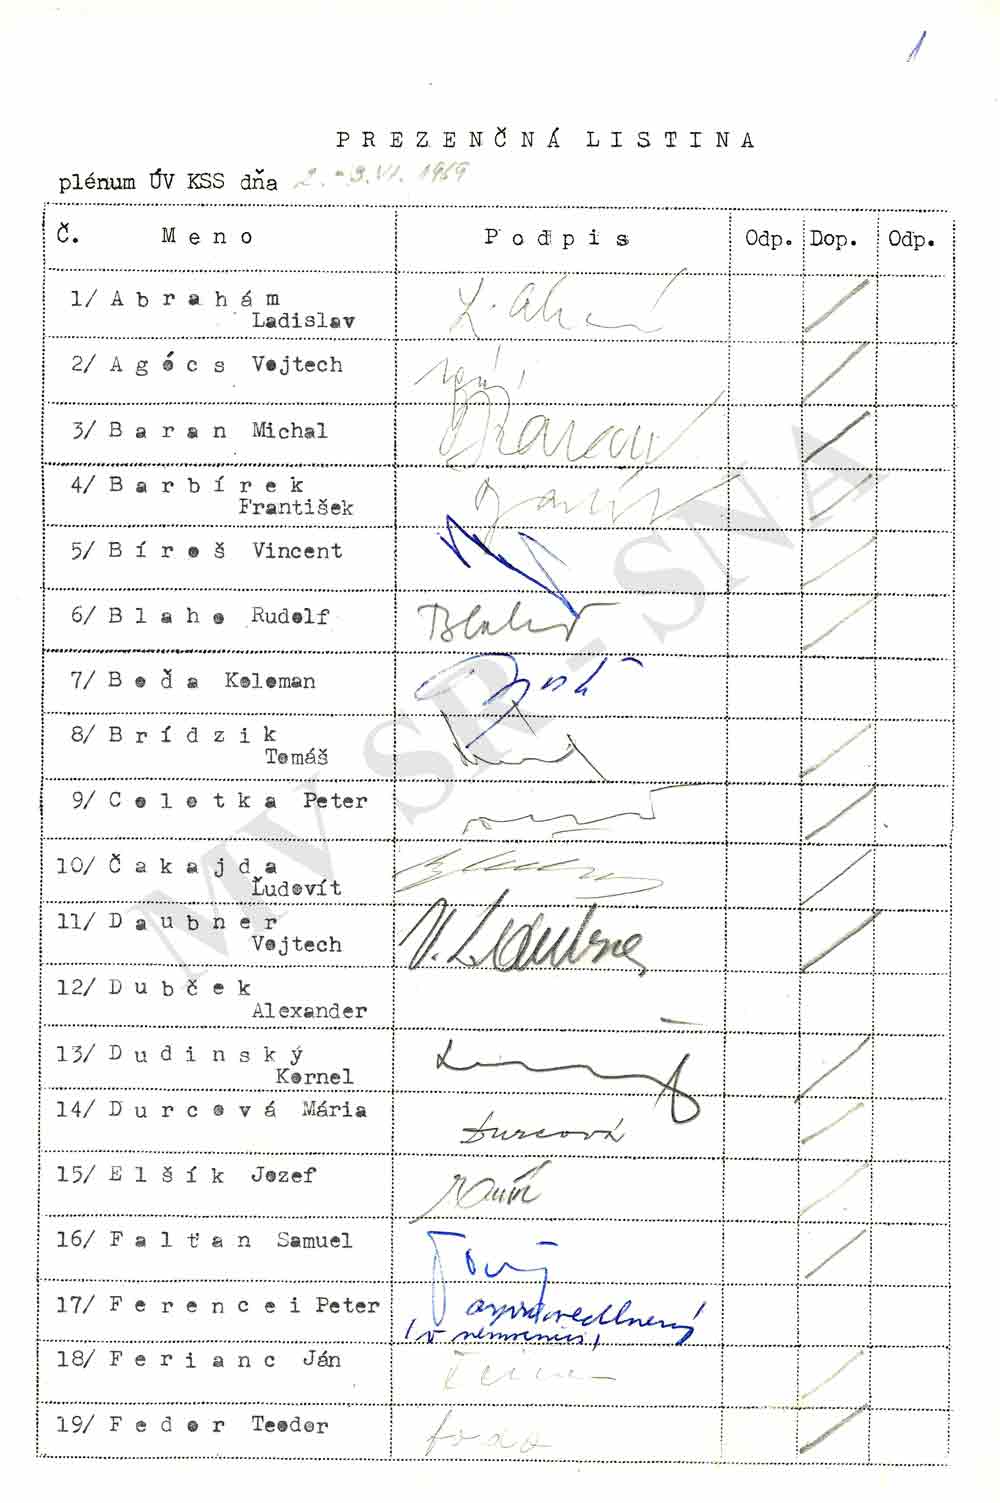 1
PREZENČNÁ LISTINA
plénum ÚV KSS dňa 2.-3.VI. 1969
Č. Meno Podpis Odp. Dop. Odp.
1/ Abrahám
Ladislav
2/ Agócs Vojtech
3/ Baran Michal Baran
4/ Barbírek
František
5/ Bíroš Vincent
6/ Blaho Rudolf Blaho
7/ Boďa Koloman
8/ Brídzik
Tomáš
9/ Colotka Peter
10/ Čakajda
Ľudovít
11/ Daubner
Vojtech V. Daubner
12/ Dubček
Alexander
13/ Dudinský
Kornel
14/ Durcová Mária Durcová
15/ Elšík Jozef
16/ Falťan Samuel
17/ Ferencei Peter ospravedlnený
(v nemocnici)
18/ Ferianc Ján
19/ Fedor Teodor
MV SR - SNA